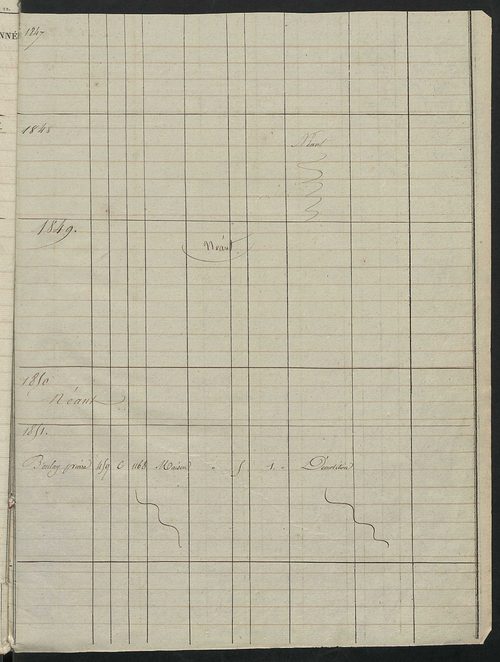 NNÉ
1847
1848
Néant
1849.
Néant
1850
Néant
1851.
Boulay pierre 459 C 1168 Maison " 5 1 " Démolition